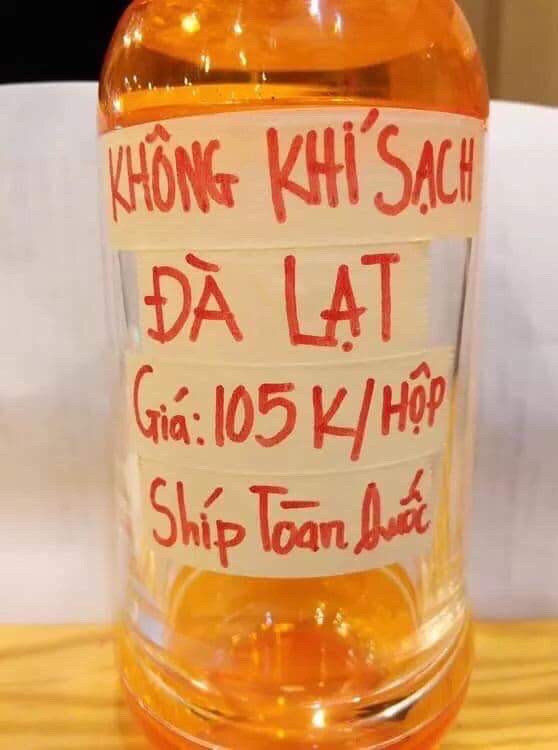 KHÔNG KHÍ SẠCH
ĐÀ LẠT
Giá: 105 K/HỘP
Shíp Toàn Quốc